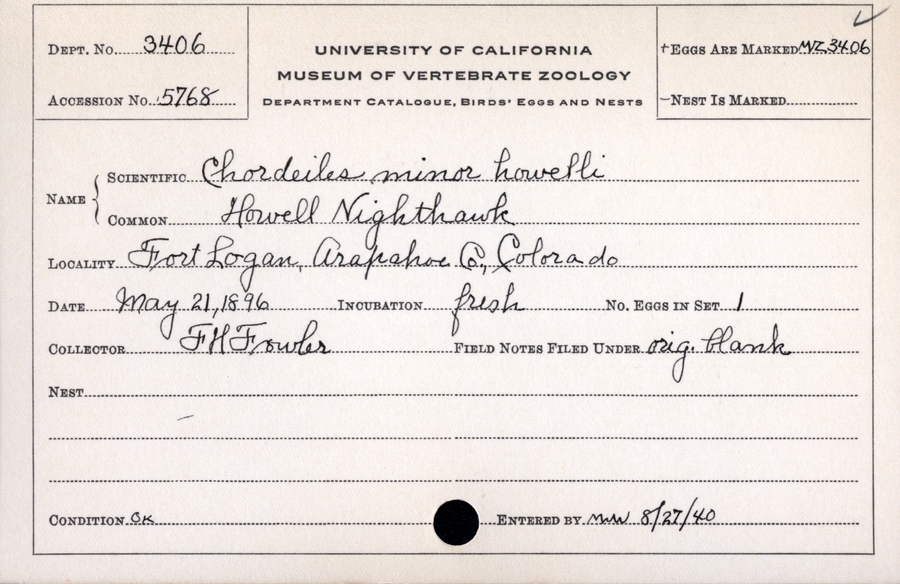 DEPT. NO. 3406
UNIVERSITY OF CALIFORNIA
MUSEUM OF VERTEBRATE ZOOLOGY
DEPARTMENT CATALOGUE, BIRDS' EGGS AND NESTS
+EGGS ARE MARKED MVZ3406
ACCESSION NO. 5768
—NEST IS MARKED
NAME
SCIENTIFIC Chordeiles minor howelli
COMMON Howell Nighthawk
LOCALITY Fort Logan, Arapahoe Co., Colorado
DATE May 21, 1896 INCUBATION fresh NO. EGGS IN SET 1
COLLECTOR F H Fowler FIELD NOTES FILED UNDER orig. blank
NEST
CONDITION OK ENTERED BY MW 8/27/40